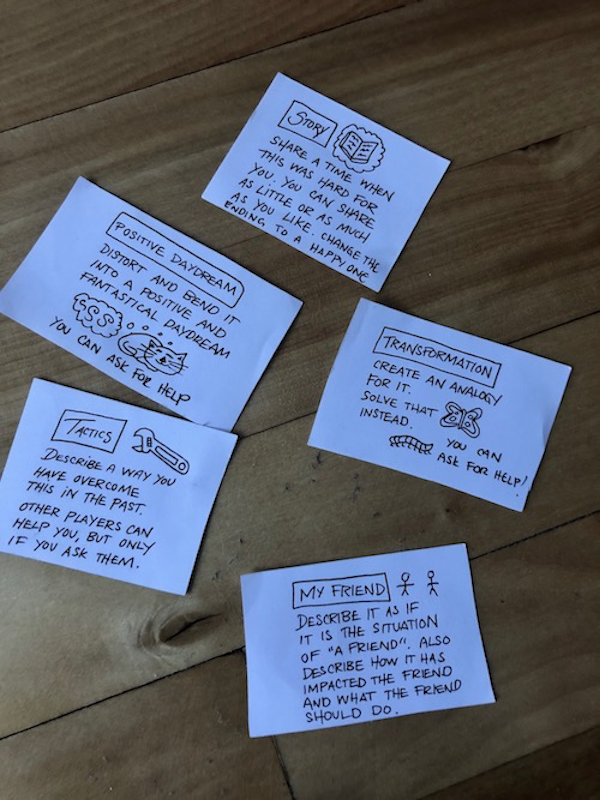 STORY
SHARE A TIME WHEN
THIS WAS HARD FOR
YOU. YOU CAN SHARE
AS LITTLE OR AS MUCH
AS YOU LIKE. CHANGE THE
ENDING TO A HAPPY ONE
POSITIVE DAYDREAM
DISTORT AND BEND IT
INTO A POSITIVE AND
FANTASTICAL DAYDREAM
$$$
YOU CAN ASK FOR HELP
TRANSFORMATION
CREATE AN ANALOGY
FOR IT.
SOLVE THAT
INSTEAD.
YOU CAN
ASK FOR HELP!
TACTICS
DESCRIBE A WAY YOU
HAVE OVERCOME
THIS IN THE PAST.
OTHER PLAYERS CAN
HELP YOU, BUT ONLY
IF YOU ASK THEM.
MY FRIEND
DESCRIBE IT AS IF
IT IS THE SITUATION
OF "A FRIEND". ALSO
DESCRIBE HOW IT HAS
IMPACTED THE FRIEND
AND WHAT THE FRIEND
SHOULD DO.